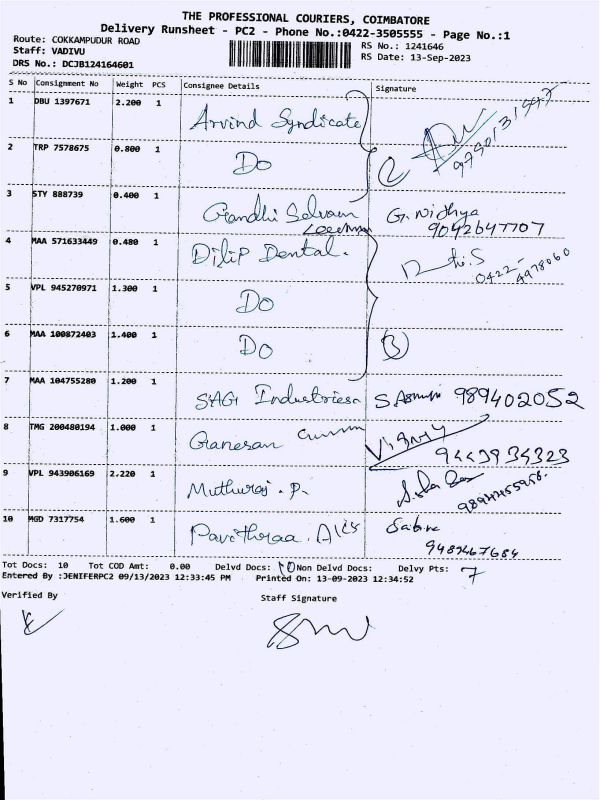 THE PROFESSIONAL COURIERS, COIMBATORE
Delivery Runsheet - PC2 - Phone No.:0422-3505555 - Page No.:1
Route: COKKAMPUDUR ROAD
RS No.: 1241646
Staff: VADIVU
RS Date: 13-Sep-2023
DRS No.: DCJB124164601
S No Consignment No Weight PCS Consignee Details Signature
1 DBU 1397671 2.200 1 Arvind Syndicate
2 TRP 7578675 0.800 1 Do 2
3 STY 888739 0.400 1 Gandhi Selvam G. Nidhya
9042647707
4 MAA 571633449 0.480 1 Dilip Dental.
0422-4978060
5 VPL 945270971 1.300 1 Do
6 MAA 100872403 1.400 1 Do 3
7 MAA 104755280 1.200 1 SAGI Industries 989402052
8 TMG 200480194 1.000 1 Ganesan
9443934323
9 VPL 943906169 2.220 1 Muthuraj . P.
10 MGD 7317754 1.600 1 Pavithraa . A Sabina
9489467684
Tot Docs: 10 Tot COD Amt: 0.00 Delvd Docs: 10 Non Delvd Docs: Delvy Pts: 7
Entered By :JENIFERPC2 09/13/2023 12:33:45 PM Printed On: 13-09-2023 12:34:52
Verified By Staff Signature